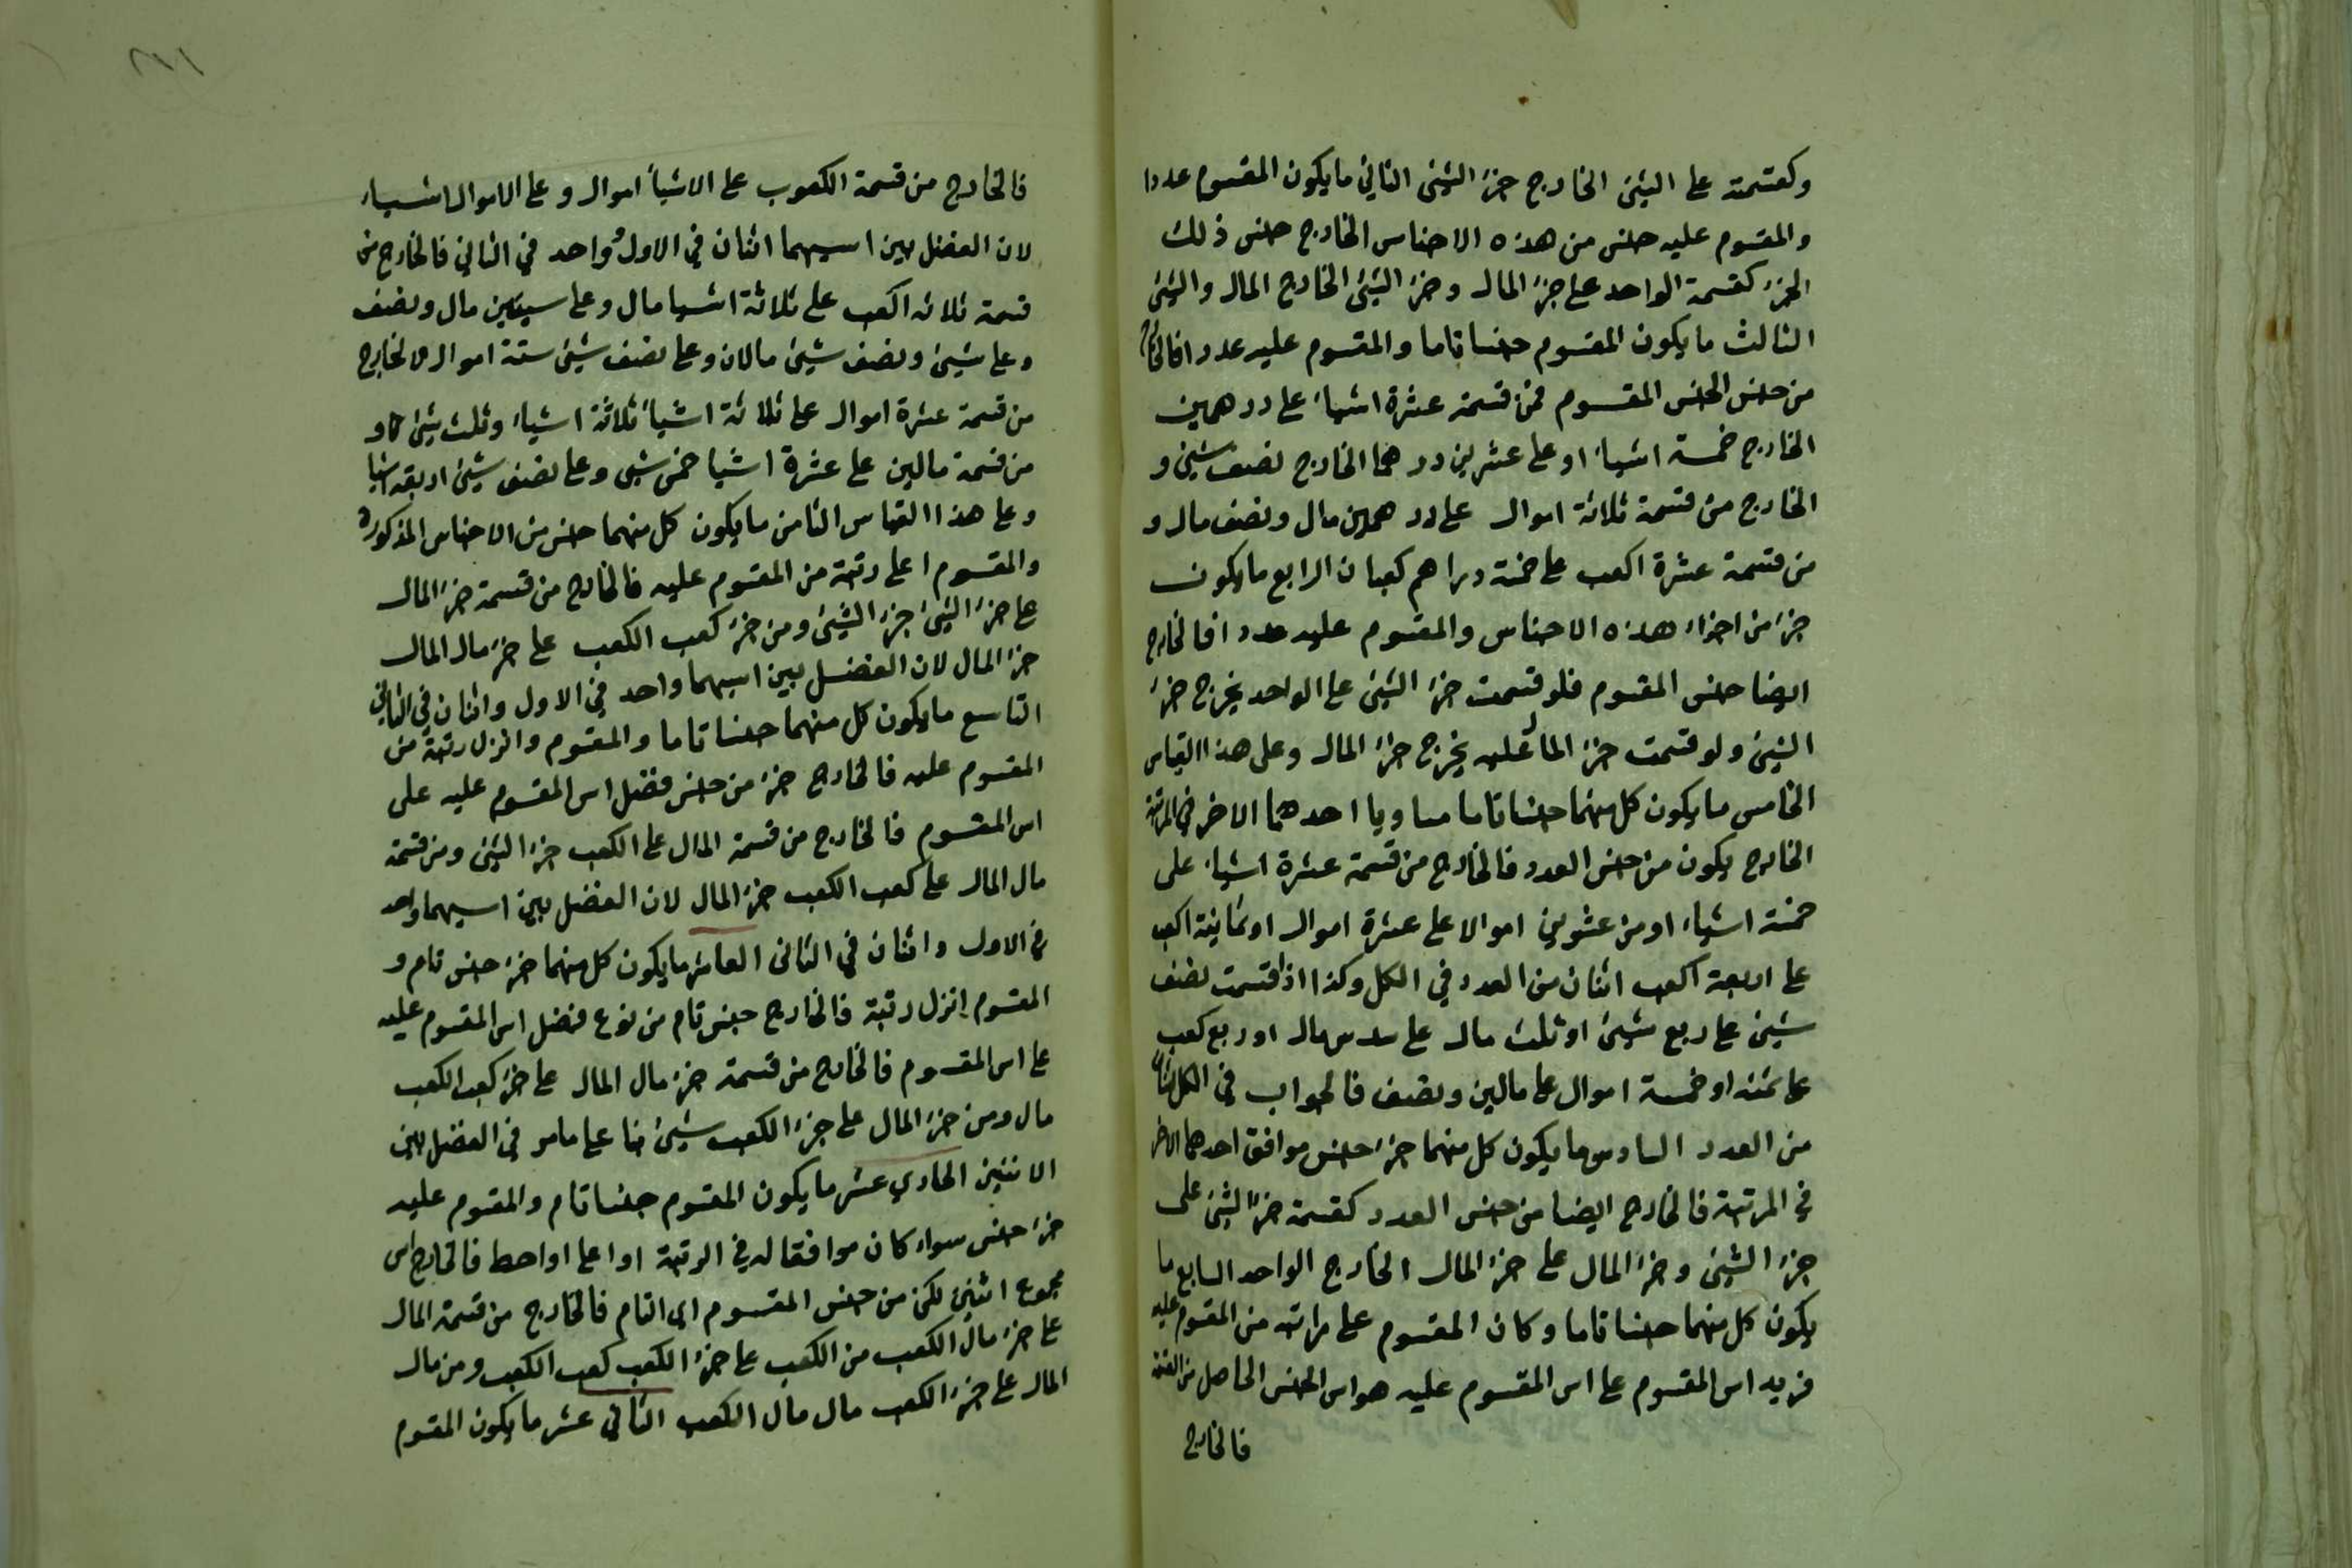 وكقسمته على الشئ الخارج جزء الشئ الثاني ما يكون المقسوم عددا
والمقسوم عليه جنس من هذه الاجناس الخارج جنس ذلك
الجزء كقسمة الواحد على جزء المال وجزء الشئ الخارج المال والشئ
الثالث ما يكون المقسوم جنسا تاما والمقسوم عليه عددا فالخارج
من جنس الجنس المقسوم فمن قسمة عشرة اشياء على درهمين
الخارج خمسة اشياء او على عشرين درهما الخارج نصف شئ و
الخارج من قسمة ثلاثة اموال على درهمين مال ونصف مال و
من قسمة عشرة اكعب على خمسة دراهم كعبان الرابع ما يكون
جزء من اجزاء هذه الاجناس والمقسوم عليه عددا فالخارج
ايضا جنس المقسوم فلو قسمت جزء الشئ على الواحد يخرج جزء
الشئ ولو قسمت جزء المال عليه يخرج جزء المال وعلى هذا القياس
الخامس ما يكون كل منهما جنسا تاما مساويا احدهما الاخر في المرتبة
الخارج يكون من جنس العدد فالخارج من قسمة عشرة اشياء على
خمسة اشياء او من عشرين اموالا على عشرة اموال او ثمانية اكعب
على اربعة اكعب اثنان من العدد في الكل وكذا اذا قسمت نصف
شئ على ربع شئ او ثلث مال على سدس مال او ربع كعب
على ثمنه او خمسة اموال على مالين ونصف فالجواب في الكل اثنان
من العدد السادس ما يكون كل منهما جزء جنس موافق احدهما الاخر
في المرتبة فالخارج ايضا من جنس العدد كقسمة جزء الشئ على
جزء الشئ وجزء المال على جزء المال الخارج الواحد السابع ما
يكون كل منهما جنسا تاما وكان المقسوم على مراتبه من المقسوم عليه
فزيد اس المقسوم على اس المقسوم عليه هو اس الجنس الحاصل من القسمة
فالخارج
فالخارج من قسمة الكعوب على الاشياء اموال وعلى الاموال اشياء
لان الفضل بين اسيهما اثنان في الاول وواحد في الثاني فالخارج من
قسمة ثلاثه اكعب على ثلاثة اشيا مال وعلى سيئين مال ونصف
وعلى شئ ونصف شئ مالان وعلى نصف شئ ستة اموال والخارج
من قسمة عشرة اموال على ثلاثة اشياء ثلاثة اشياء وثلث شئ
من قسمة مالين على عشرة اشيا خمس شئ وعلى نصف شئ اربعة اشيا
وعلى هذا القياس الثامن ما يكون كل منهما جنس من الاجناس المذكورة
والمقسوم اعلى رتبة من المقسوم عليه فالخارج من قسمة جزء المال
على جزء الشئ جزء الشئ ومن جزء كعب الكعب على جزء مال المال
جزء المال لان الفضل بين اسيهما واحد في الاول واثنان في الثاني
التاسع ما يكون كل منهما جنسا تاما والمقسوم وانزل رتبة من
المقسوم عليه فالخارج جزء من جنس فضل اس المقسوم عليه على
اس المقسوم فالخارج من قسمة المال على الكعب جزء الشئ ومن قسمة
مال المال على كعب الكعب جزء المال لان الفضل بين اسيهما واحد
في الاول واثنان في الثاني العاشر ما يكون كل منهما جزء جنس تام و
المقسوم انزل رتبة فالخارج جنس تام من نوع فضل اس المقسوم عليه
على اس المقسوم فالخارج من قسمة جزء مال المال على جزء كعب الكعب
مال ومن جزء المال على جزء الكعب شئ بنا على مامر في الفضل بين
الاثنين الحادي عشر ما يكون المقسوم جنسا تام والمقسوم عليه
جزء جنس سواء كان موافقا له في الرتبة او اعلى او احط فالخارج اس
مجموع اثنين لكن من جنس المقسوم اى التام فالخارج من قسمة المال
على جزء مال الكعب من الكعب على جزء الكعب كعب الكعب ومن مال
المال على جزء الكعب مال مال الكعب الثاني عشر ما يكون المقسوم